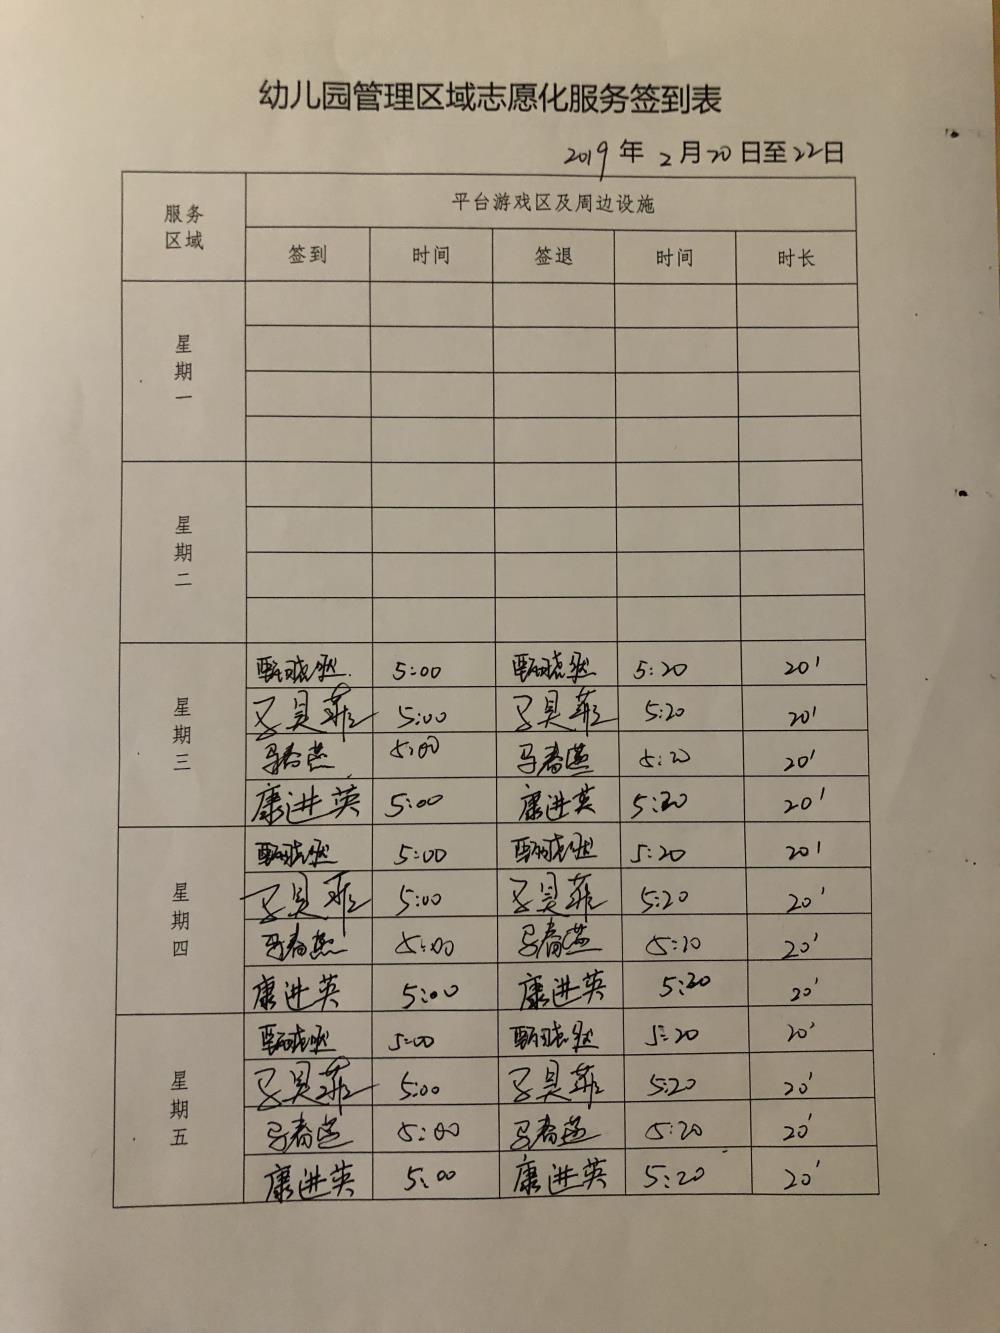 幼儿园管理区域志愿化服务签到表
2019年2月20日至22日
服务区域 平台游戏区及周边设施
签到 时间 签退 时间 时长
星期一
星期二
星期三
甄晓 5:00 甄晓 5:20 20'
贝菲 5:00 贝菲 5:20 20'
马春燕 5:00 马春燕 5:20 20'
康进英 5:00 康进英 5:20 20'
星期四
甄晓 5:00 甄晓 5:20 20'
贝菲 5:00 贝菲 5:20 20'
马春燕 5:00 马春燕 5:20 20'
康进英 5:00 康进英 5:20 20'
星期五
甄晓 5:00 甄晓 5:20 20'
贝菲 5:00 贝菲 5:20 20'
马春燕 5:00 马春燕 5:20 20'
康进英 5:00 康进英 5:20 20'